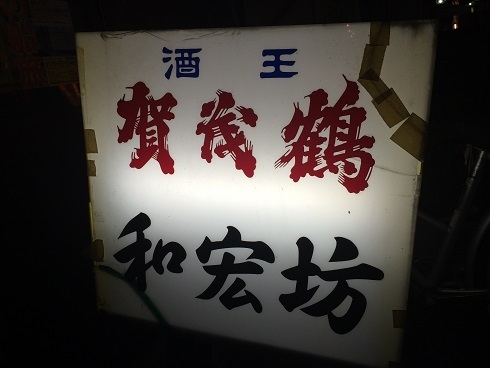 酒王
賀茂鶴
和宏坊